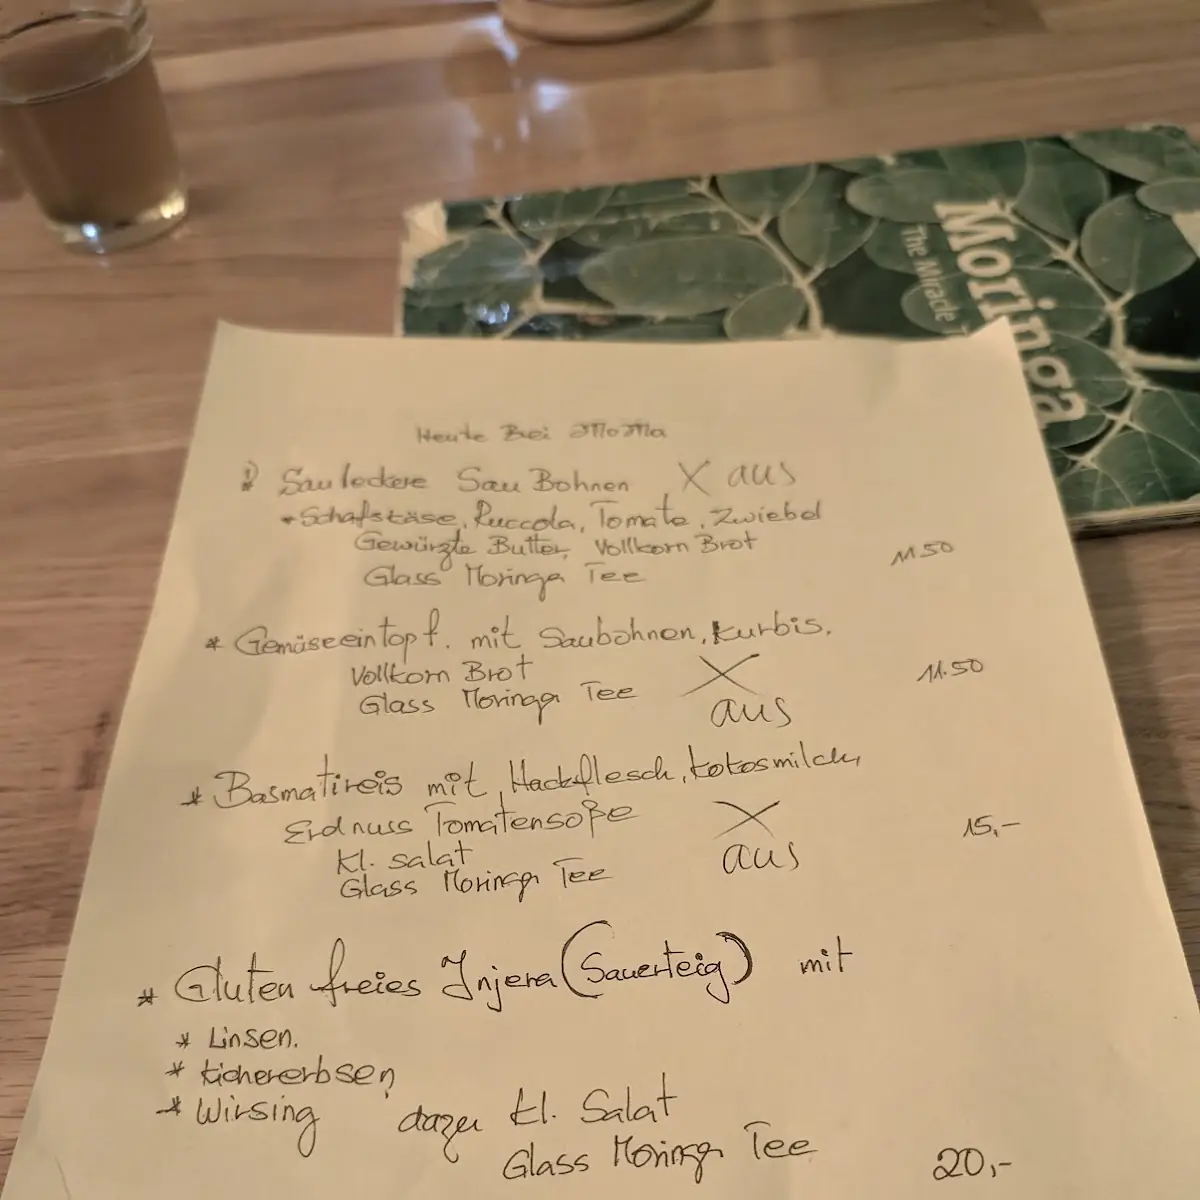 Moringa
The Miracle
Heute Bei MoMa
* Sauleckere Sau Bohnen X aus
* Schafskäse, Ruccola, Tomate, Zwiebel
Gewürzte Butter, Vollkorn Brot
Glass Moringa Tee 11.50
* Gemüseeintopf. mit Saubohnen, Kurbis,
Vollkorn Brot X 11.50
Glass Moringa Tee aus
* Basmatireis mit, Hackflesch, Kokosmilch,
Erdnuss Tomatensoße X 15,-
Kl. Salat aus
Glass Moringa Tee
* Gluten freies Injera (Sauerteig) mit
* Linsen.
* Kichererbsen
* Wirsing dazu Kl. Salat
Glass Moringa Tee 20,-